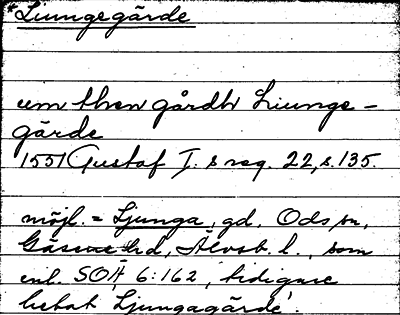 *Liungegärde
um then gårdh Liunge-
gärde
1551 Gustaf I. s reg. 22, s. 135.
möjl. = Ljunga, gd, Ods sn,
Gäsene hd, Älvsb. l., som
enl. SOÄ 6:162, tidigare
hetat 'Ljungagärde'.